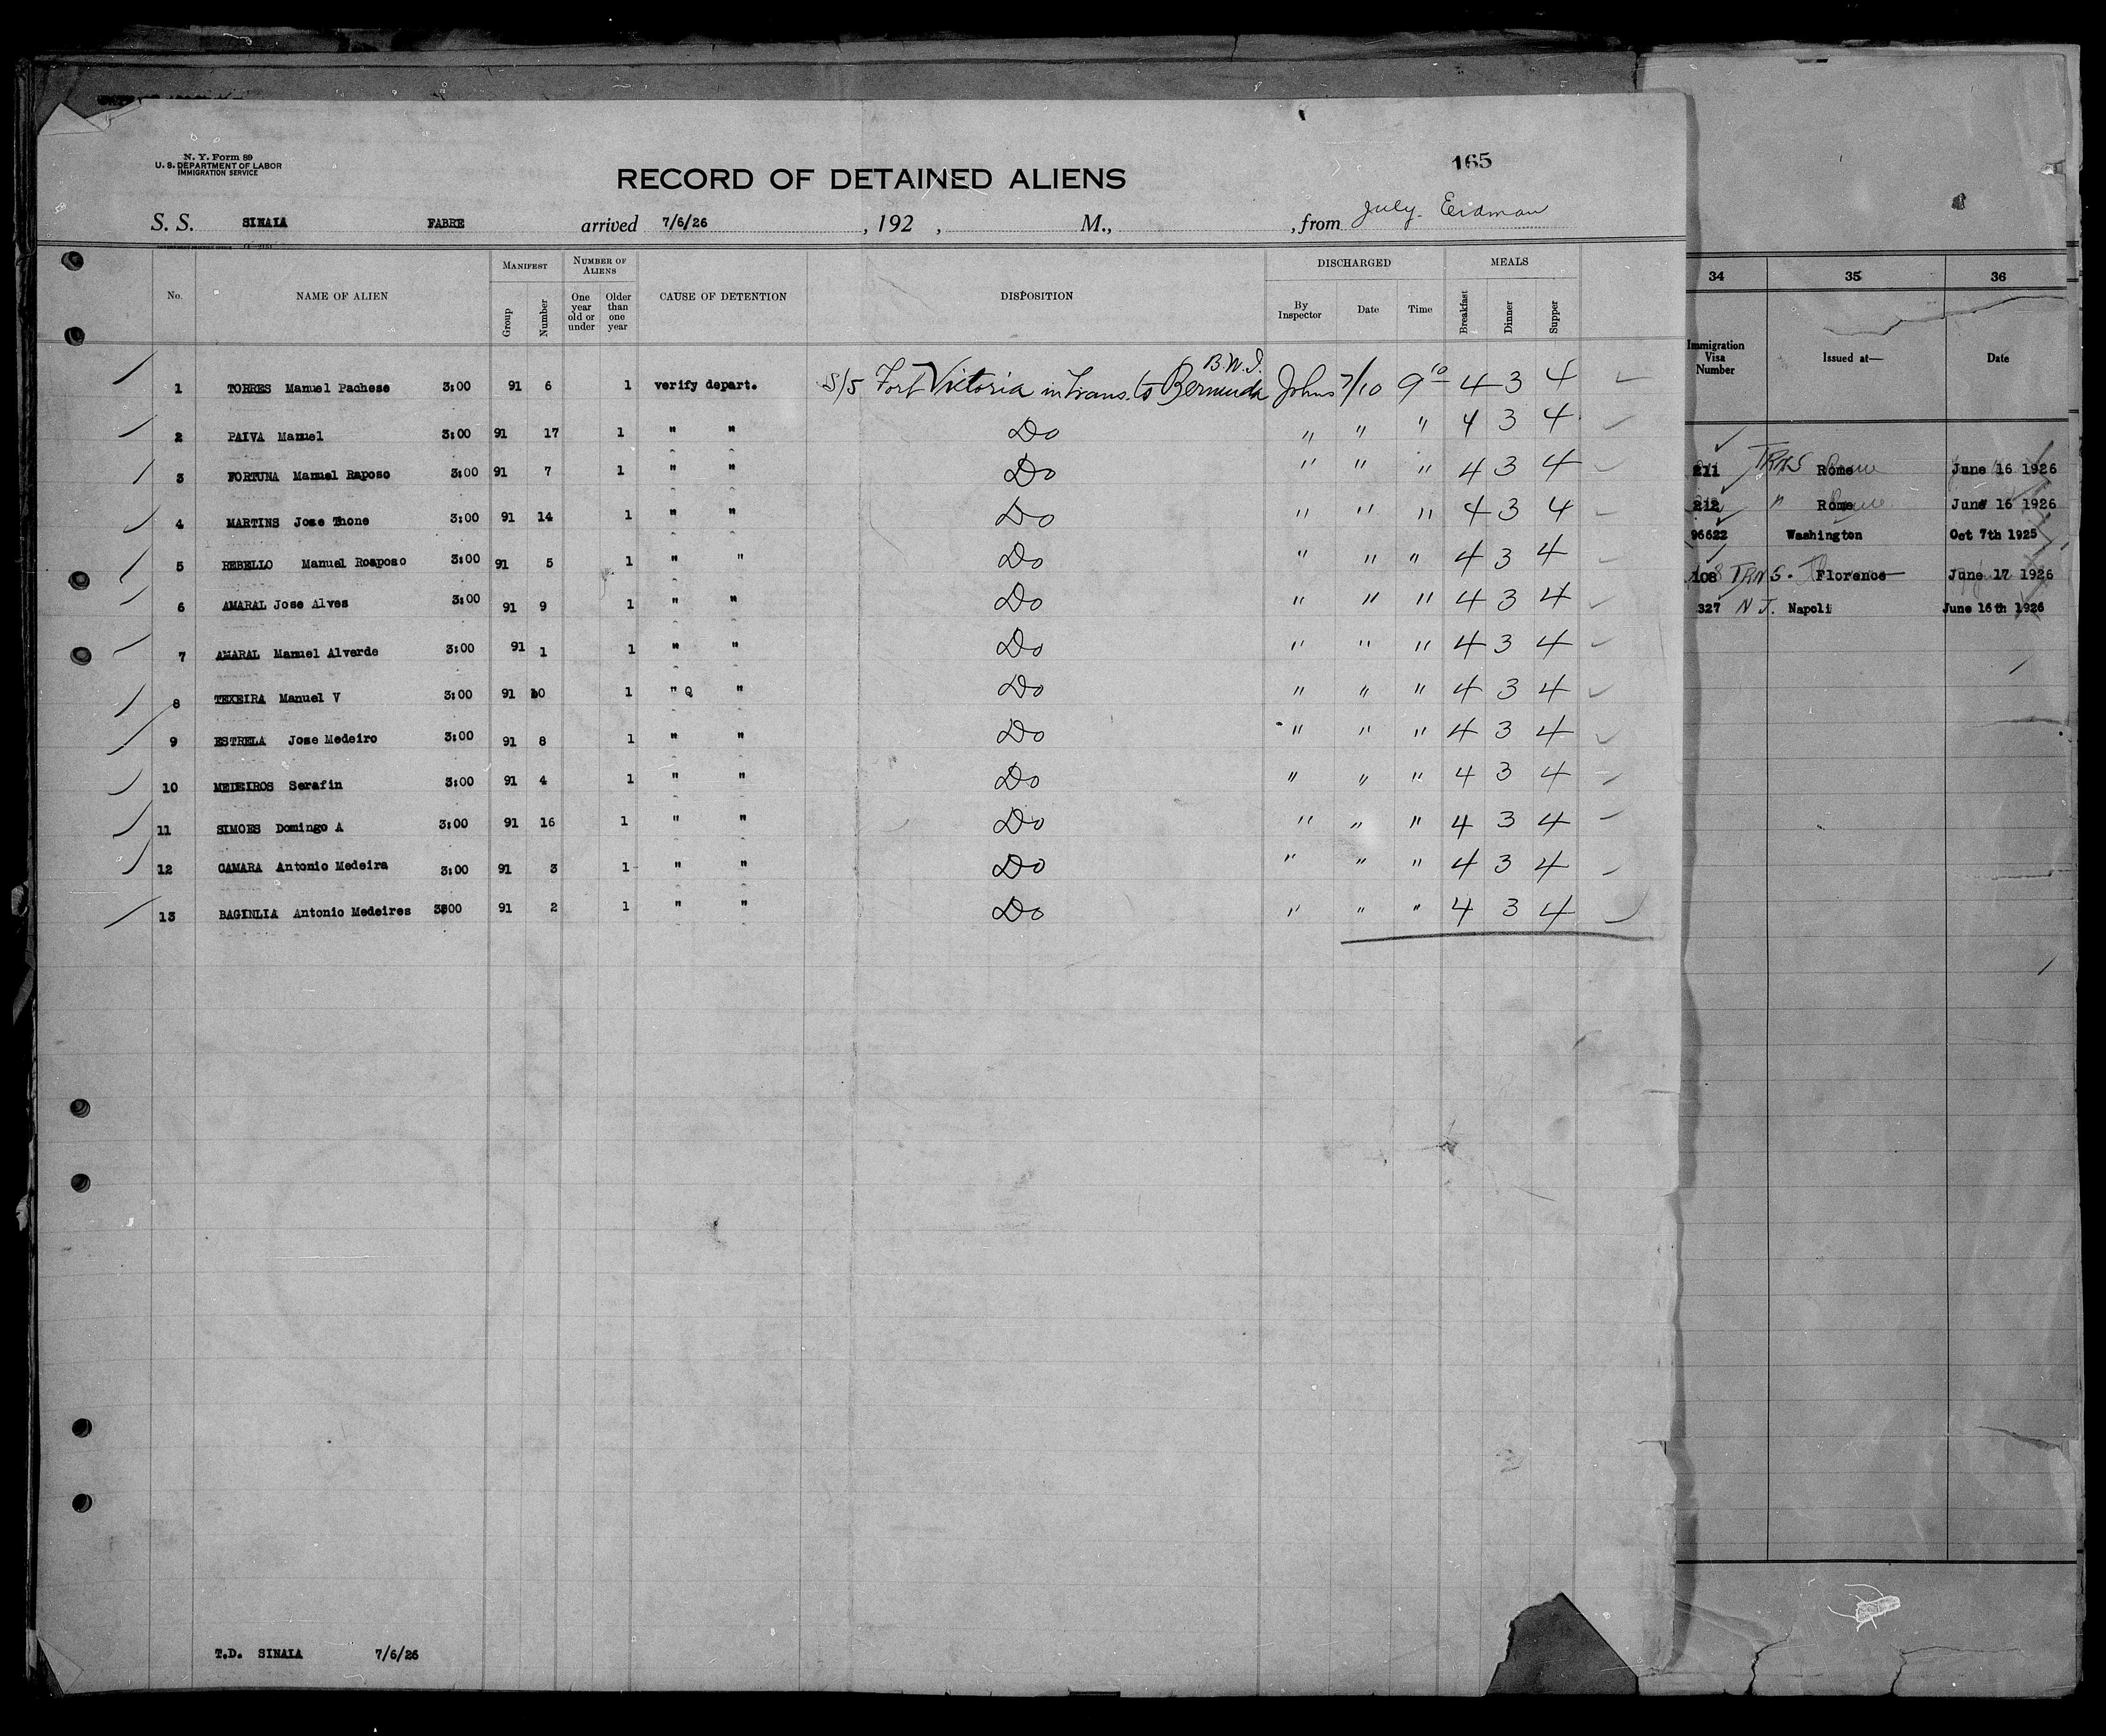 N. Y. Form 89
U. S. DEPARTMENT OF LABOR
IMMIGRATION SERVICE
165
RECORD OF DETAINED ALIENS
S. S. SINAIA FABRE arrived 7/6/26 , 192 , M., , from July. Erdman
No. NAME OF ALIEN MANIFEST Group Number NUMBER OF ALIENS One year old or under Older than one year CAUSE OF DETENTION DISPOSITION DISCHARGED By Inspector Date Time MEALS Breakfast Dinner Supper
B.W.I.
1 TORRES Manuel Pachese 3:00 91 6 1 verify depart. S/S Fort Victoria in trans. to Bermuda Johns 7/10 9 10 4 3 4
2 PAIVA Manuel 3:00 91 17 1 " " Do " " " 4 3 4
3 FORTUNA Manuel Raposo 3:00 91 7 1 " " Do " " " 4 3 4
4 MARTINS Jose Thone 3:00 91 14 1 " " Do " " " 4 3 4
5 REBELLO Manuel Roaposo 3:00 91 5 1 " " Do " " " 4 3 4
6 AMARAL Jose Alves 3:00 91 9 1 " " Do " " " 4 3 4
7 AMARAL Manuel Alverde 3:00 91 1 1 " " Do " " " 4 3 4
8 TEXEIRA Manuel V 3:00 91 10 1 " Q " Do " " " 4 3 4
9 ESTRELA Jose Medeiro 3:00 91 8 1 " " Do " " " 4 3 4
10 MEDEIROS Serafin 3:00 91 4 1 " " Do " " " 4 3 4
11 SIMOES Domingo A 3:00 91 16 1 " " Do " " " 4 3 4
12 CAMARA Antonio Medeira 3:00 91 3 1 " " Do " " " 4 3 4
13 BAGINLIA Antonio Medeires 3:00 91 2 1 " " Do " " " 4 3 4
T.D. SINAIA 7/6/26
34 35 36
Immigration Visa Number Issued at— Date
211 TRNS Rome June 16 1926
212 " Rome June 16 1926
96622 Washington Oct 7th 1925
108 TRNS. Florence June 17 1926
327 N J. Napoli June 16th 1926